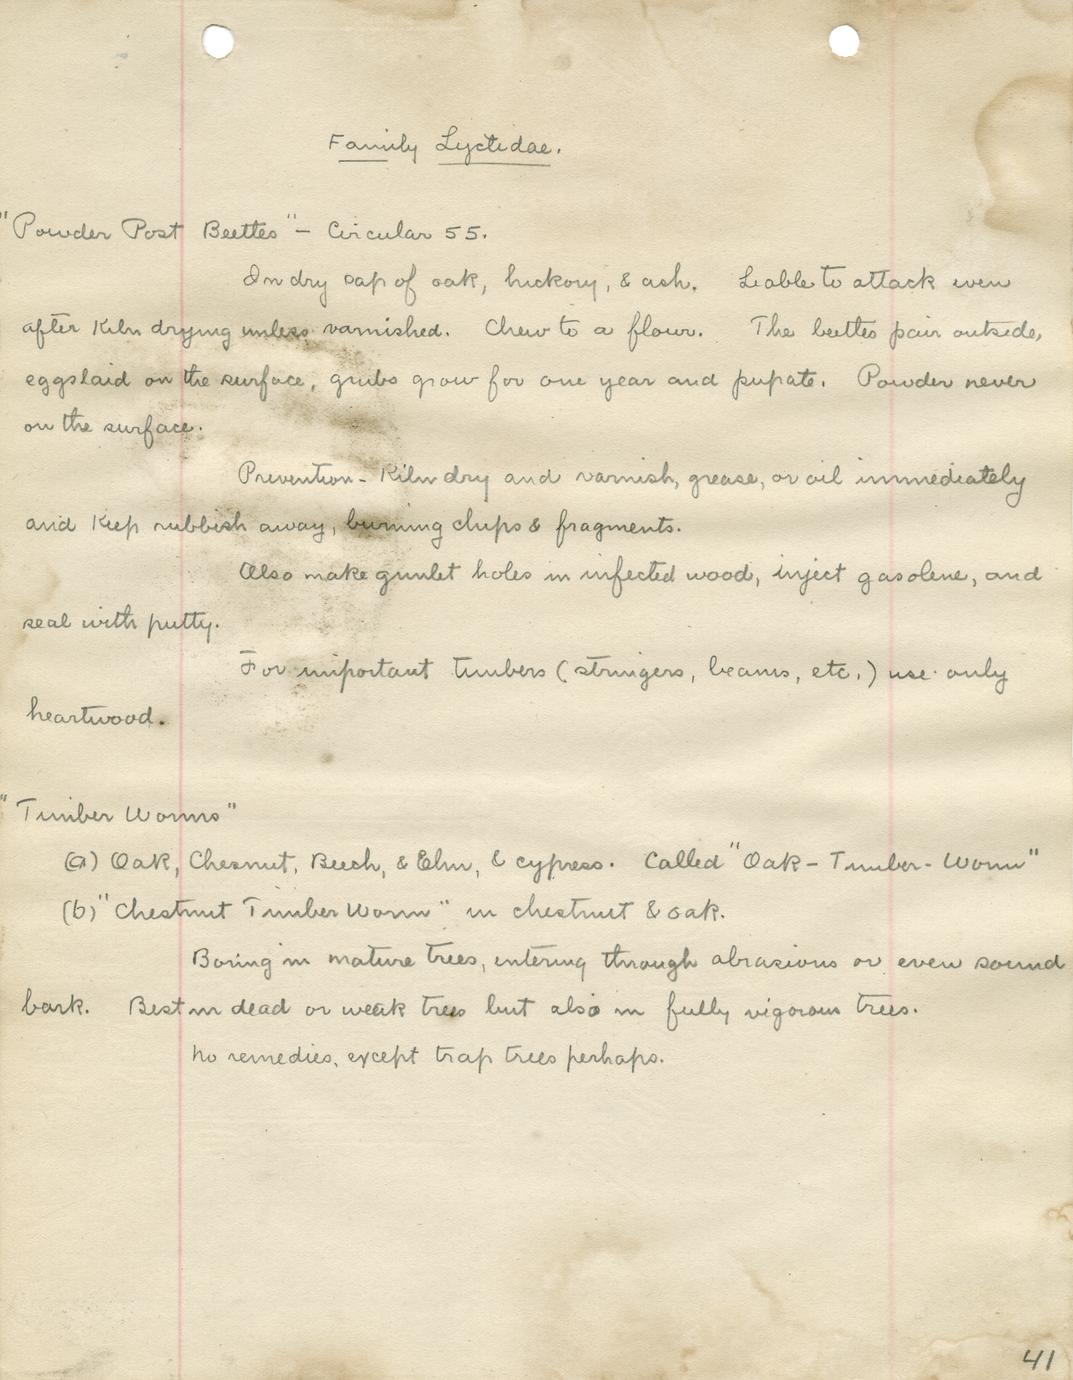 Family Lyctidae.
"Powder Post Beettes" - Circular 55.
In dry sap of oak, hickory, & ash. Liable to attack even
after Kiln drying unless varnished. Chew to a flour. The beettes pair outside,
eggs laid on the surface, grubs grow for one year and pupate. Powder never
on the surface.
Prevention - Kiln dry and varnish, grease, or oil immediately
and Keep rubbish away, burning chips & fragments.
Also make gimlet holes in infected wood, inject gasolene, and
seal with putty.
For important timbers (stringers, beams, etc.) use only
heartwood.
"Timber Worms"
(a) Oak, Chesnut, Beech, & Elm, & cypress. Called "Oak - Timber - Worm"
(b) "Chestnut Timber Worm" in chestnut & oak.
Boring in mature trees, entering through abrasions or even sound
bark. Best in dead or weak trees but also in fully vigorous trees.
No remedies, except trap trees perhaps.
41